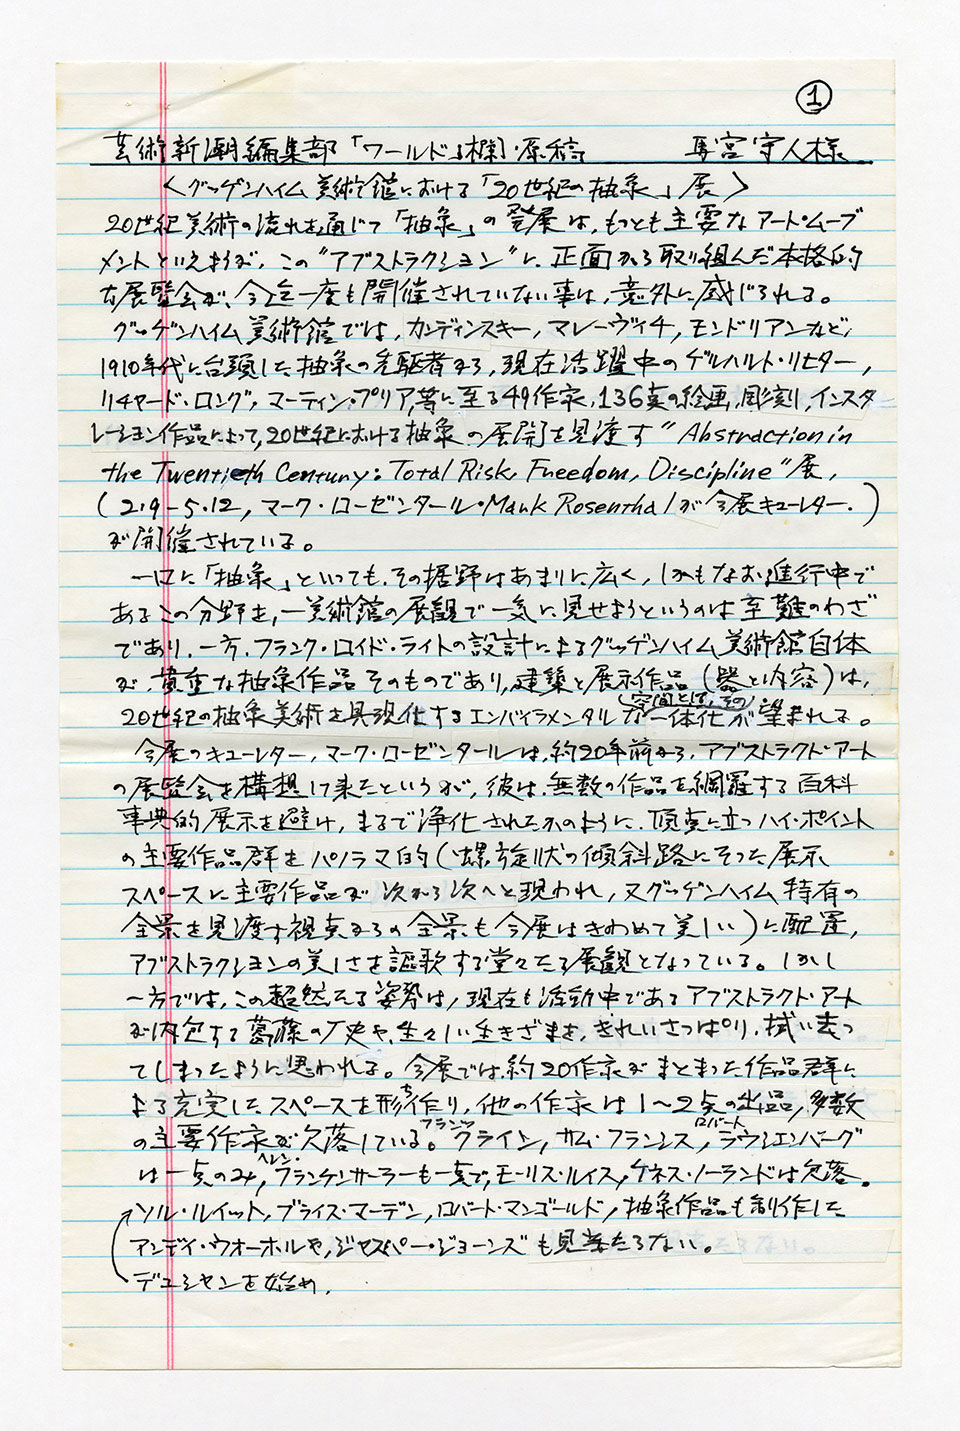 ①
芸術新潮編集部「ワールド」欄・原稿 馬宮守人様
〈グッゲンハイム美術館における「20世紀の抽象」展〉
20世紀美術の流れを通じて「抽象」の発展は、もっとも主要なアート・ムーブ
メントといえようが、この“アブストラクション”に、正面から取り組んだ本格的
な展覧会が、今迄一度も開催されていない事は、意外に感じられる。
グッゲンハイム美術館では、カンディンスキー、マレーヴィチ、モンドリアンなど、
1910年代に台頭した抽象の先駆者から、現在活躍中のゲルハルト・リヒター、
リチャード・ロング、マーティン・プリア、等に至る49作家、136点の絵画、彫刻、インスタ
レーション作品によって、20世紀における抽象の展開を見渡す“Abstraction in
the Twentieth Century: Total Risk, Freedom, Discipline”展、
(2.9-5.12, マーク・ローゼンタール・Mark Rosenthalが今展キューレター.)
が開催されている。
一口に「抽象」といっても、その裾野はあまりに広く、しかもなお進行中で
あるこの分野を、一美術館の展観で一気に見せようというのは至難のわざ
であり、一方、フランク・ロイド・ライトの設計によるグッゲンハイム美術館自体
が、貴重な抽象作品そのものであり、建築と展示作品(器と内容)は、
(空間とは、その)
20世紀の抽象美術を具現化するエンバイラメンタルな一体化が望まれる。
今展のキューレター、マーク・ローゼンタールは、約20年前から、アブストラクト・アート
の展覧会を構想して来たというが、彼は、無数の作品を網羅する百科
事典的展示を避け、まるで浄化されたかのように、頂点に立つハイ・ポイント
の主要作品群をパノラマ的(螺旋状の傾斜路にそった展示
スペースに主要作品が次から次へと現われ、又グッゲンハイム特有の
全景を見渡す視点からの全景も今展はきわめて美しい)に配置、
アブストラクションの美しさを謳歌する堂々たる展観となっている。しかし
一方では、この超然たる姿勢は、現在も活動中であるアブストラクト・アート
が内包する葛藤の歴史や、生々しい生きざまを、きれいさっぱり、拭い去っ
てしまったように思われる。今展では、約20作家がまとまった作品群に
よる充実したスペースを形作り、他の作家は1〜2点の出品、多数
の主要作家が欠落している。フランツ・クライン、サム・フランシス、ロバート・ラウシェンバーグ
は一点のみ、ヘレン・フランケンサーラーも一点で、モーリス・ルイス、ケネス・ノーランドは欠落。
ソル・ルイット、ブライス・マーデン、ロバート・マンゴールド、抽象作品も制作した
アンディ・ウォーホルや、ジャスパー・ジョーンズも見当たらない。
デュシャンを始め、